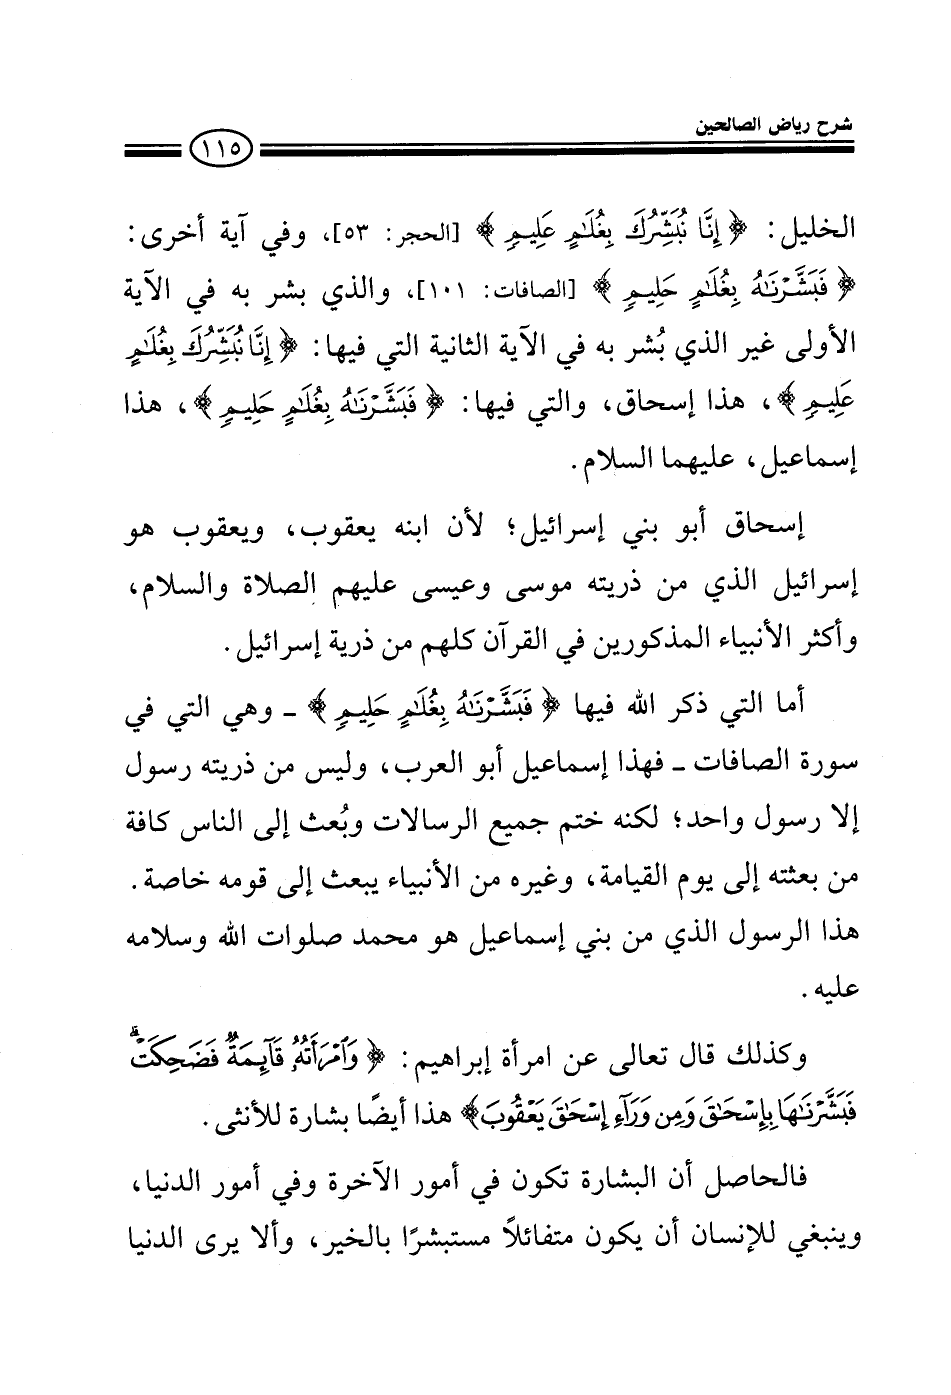 شرح رياض الصالحين
١١٥
الخليل: ﴿إِنَّا نُبَشِّرُكَ بِغُلَٰمٍ عَلِيمٍ﴾ [الحجر: ٥٣]، وفي آية أخرى:
﴿فَبَشَّرْنَٰهُ بِغُلَٰمٍ حَلِيمٍ﴾ [الصافات: ١٠١]، والذي بشر به في الآية
الأولى غير الذي بُشر به في الآية الثانية التي فيها: ﴿إِنَّا نُبَشِّرُكَ بِغُلَٰمٍ
عَلِيمٍ﴾، هذا إسحاق، والتي فيها: ﴿فَبَشَّرْنَٰهُ بِغُلَٰمٍ حَلِيمٍ﴾، هذا
إسماعيل، عليهما السلام.
إسحاق أبو بني إسرائيل؛ لأن ابنه يعقوب، ويعقوب هو
إسرائيل الذي من ذريته موسى وعيسى عليهم الصلاة والسلام،
وأكثر الأنبياء المذكورين في القرآن كلهم من ذرية إسرائيل.
أما التي ذكر الله فيها ﴿فَبَشَّرْنَٰهُ بِغُلَٰمٍ حَلِيمٍ﴾ ـ وهي التي في
سورة الصافات ـ فهذا إسماعيل أبو العرب، وليس من ذريته رسول
إلا رسول واحد؛ لكنه ختم جميع الرسالات وبُعث إلى الناس كافة
من بعثته إلى يوم القيامة، وغيره من الأنبياء يبعث إلى قومه خاصة.
هذا الرسول الذي من بني إسماعيل هو محمد صلوات الله وسلامه
عليه.
وكذلك قال تعالى عن امرأة إبراهيم: ﴿وَٱمْرَأَتُهُۥ قَآئِمَةٌ فَضَحِكَتْ
فَبَشَّرْنَٰهَا بِإِسْحَٰقَ وَمِن وَرَآءِ إِسْحَٰقَ يَعْقُوبَ﴾ هذا أيضًا بشارة للأنثى.
فالحاصل أن البشارة تكون في أمور الآخرة وفي أمور الدنيا،
وينبغي للإنسان أن يكون متفائلاً مستبشرًا بالخير، وألا يرى الدنيا